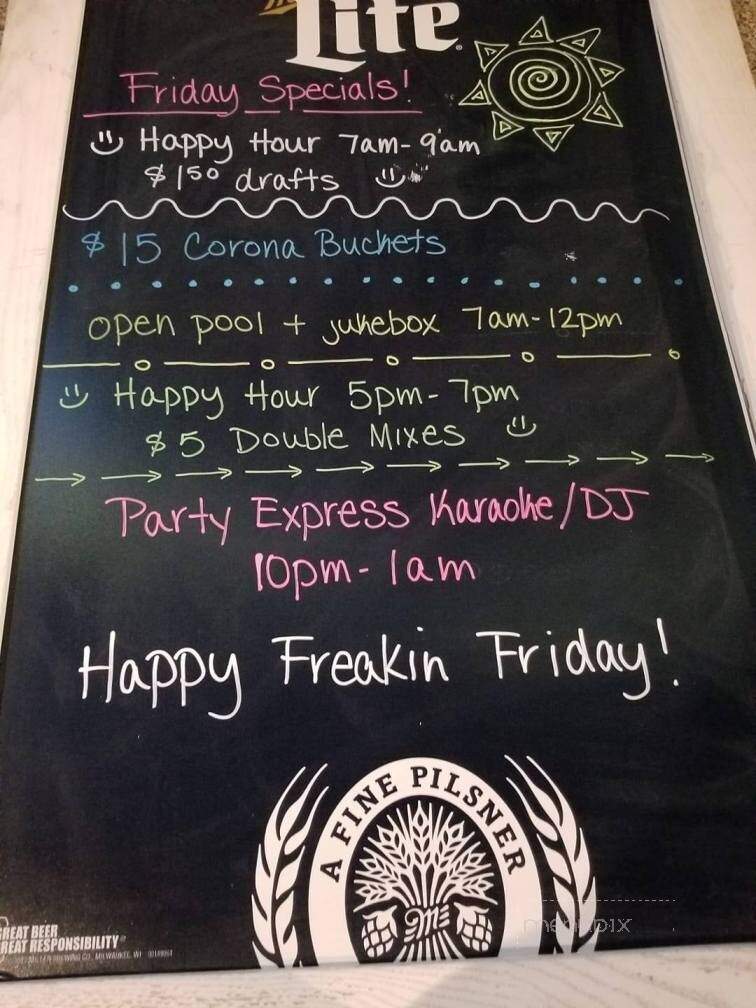 Lite
Friday Specials!
Happy Hour 7am-9am
$1.50 drafts
$15 Corona Buckets
open pool + jukebox 7am-12pm
Happy Hour 5pm-7pm
$5 Double Mixes
Party Express Karaoke/DJ
10pm-1am
Happy Freakin Friday!
A FINE PILSNER
M
GREAT BEER
GREAT RESPONSIBILITY
menupix